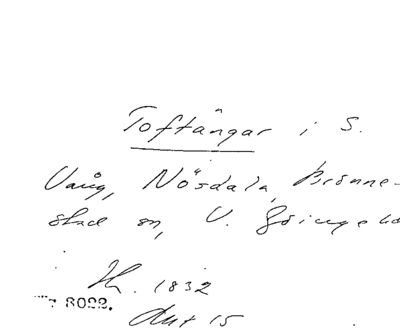 Toftängar i S.
Vång, Nösdala, Brönne-
stad sn, V. Göinge hd
H. 1832
8022.
Akt 15